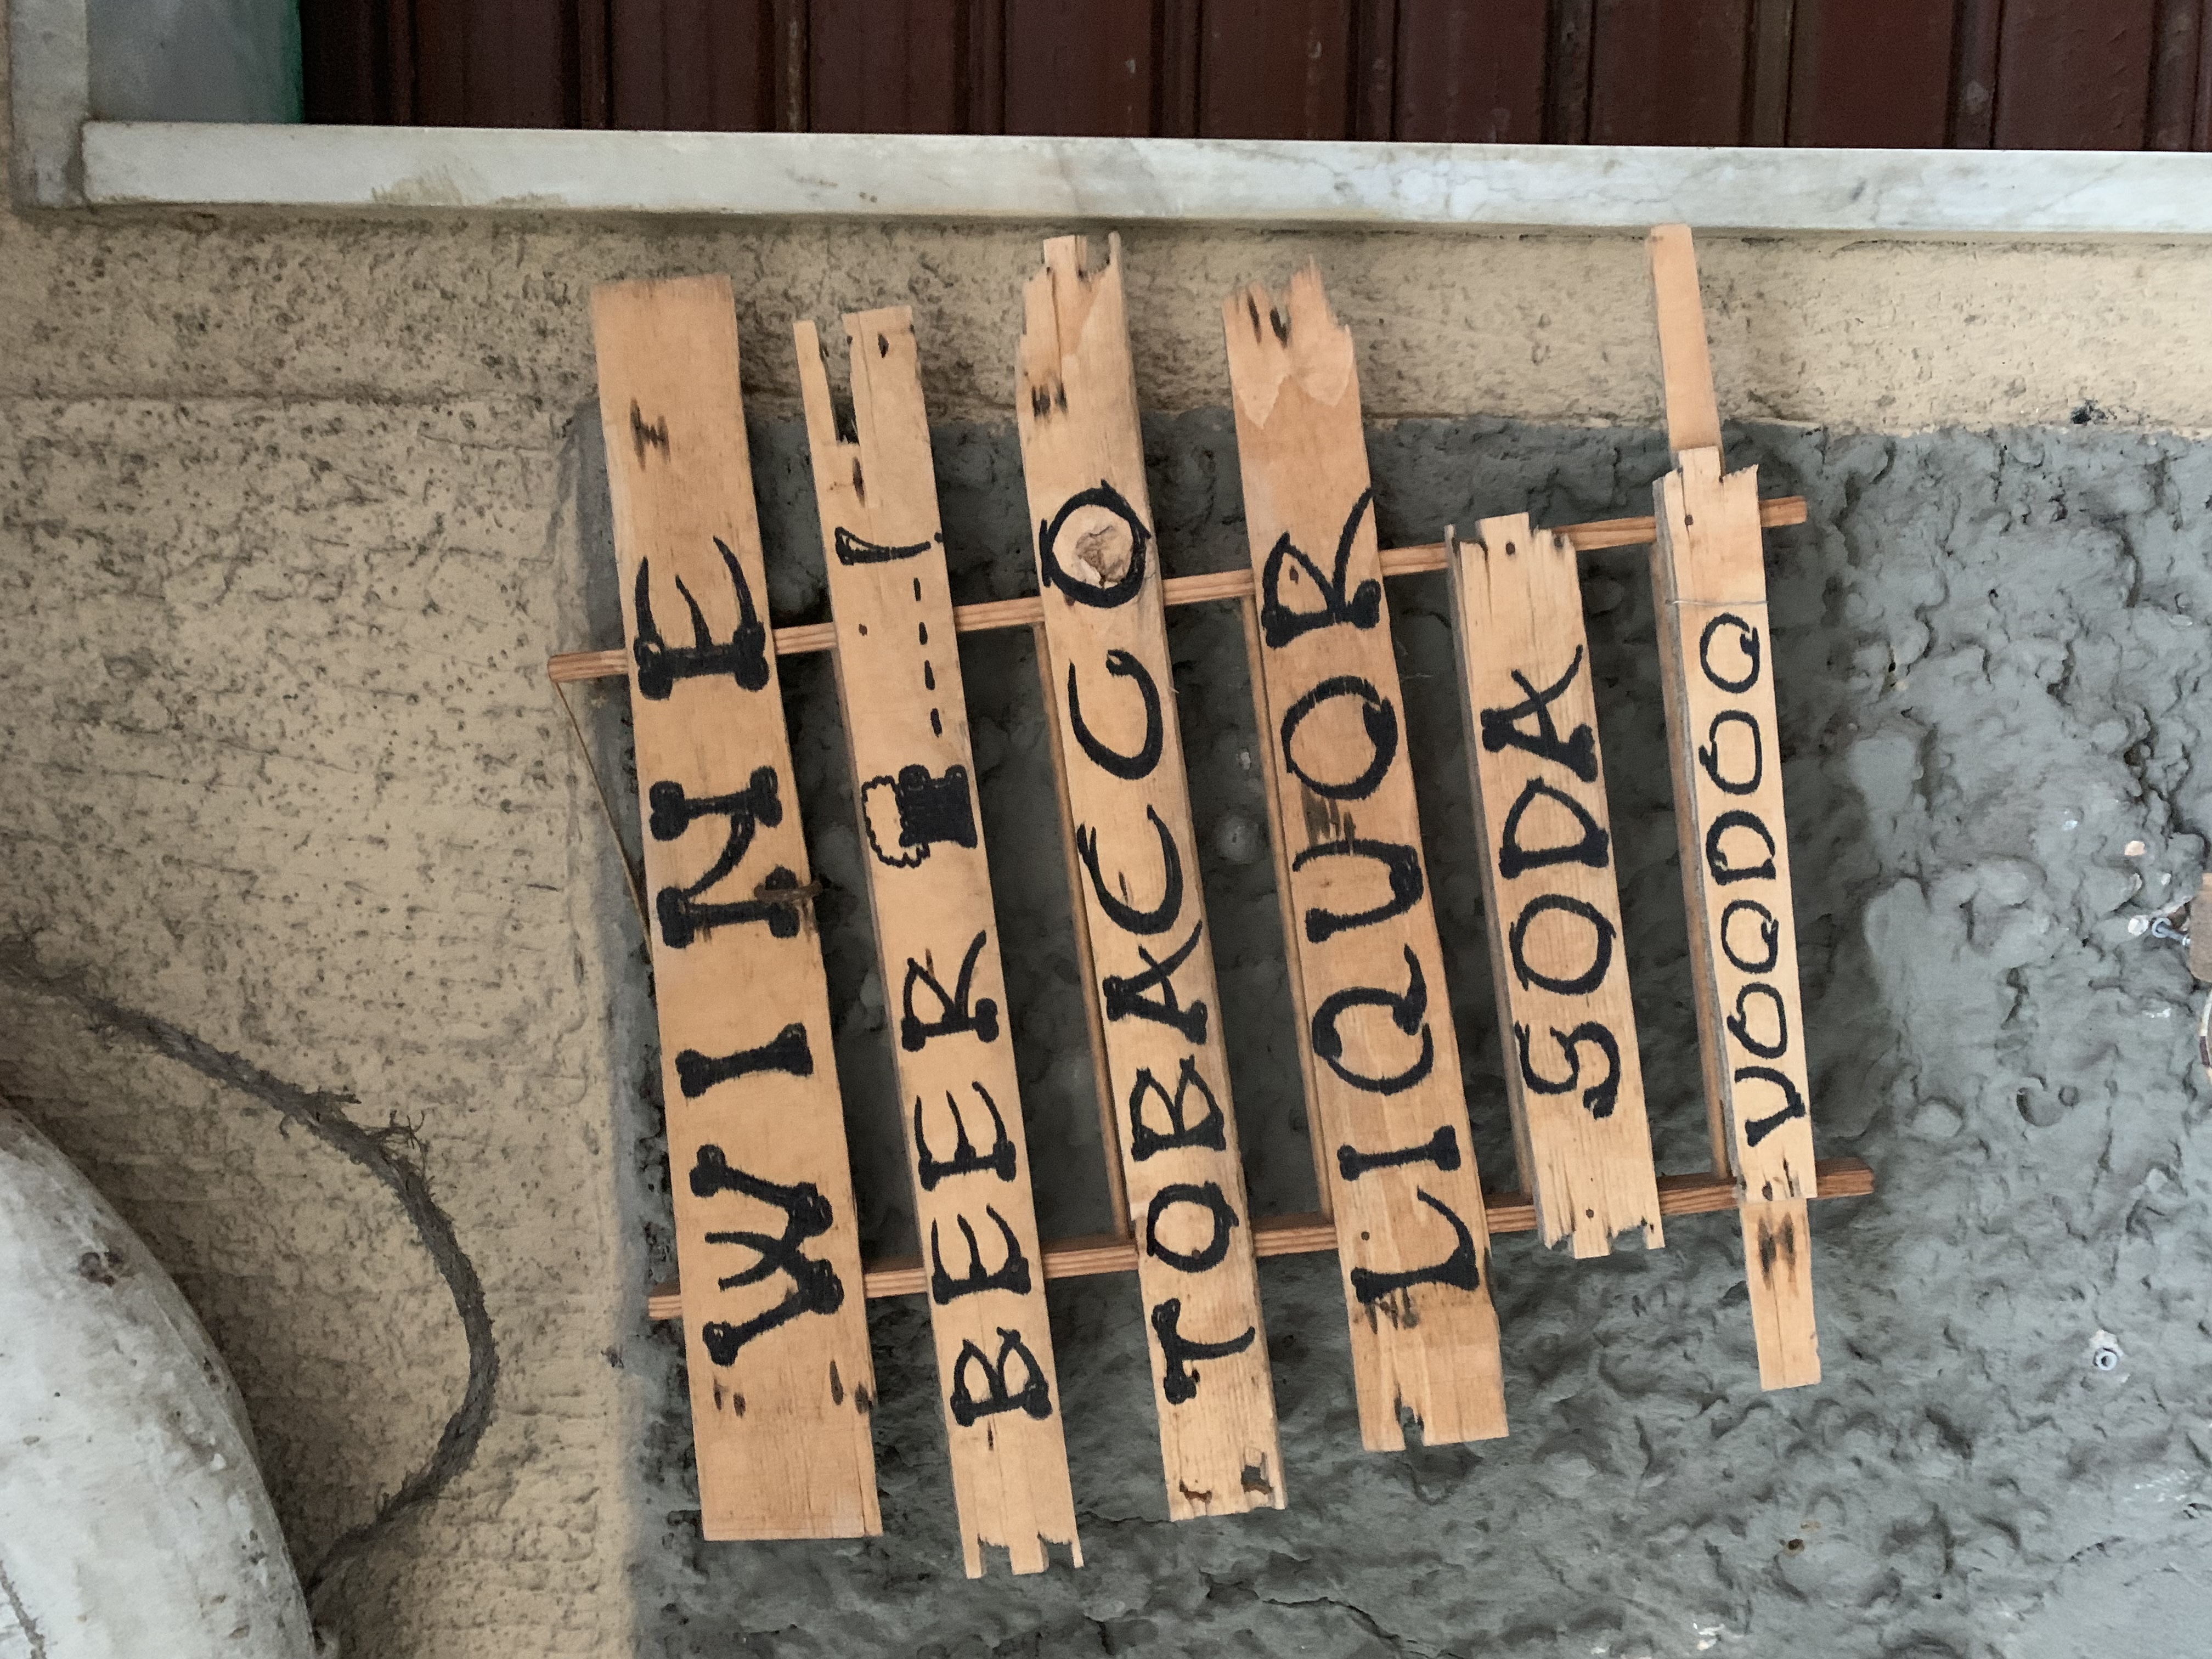 WINE
BEER
TOBACCO
LIQUOR
SODA
VOODOO